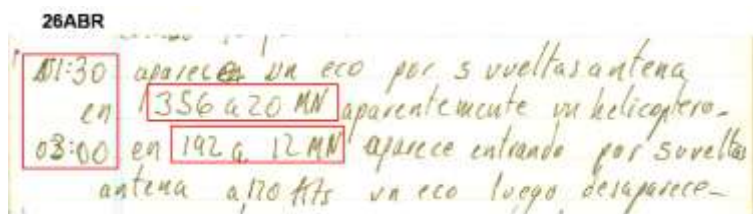 26ABR
01:30 aparece un eco por 5 vueltas antena
en 356 a 20 MN aparentemente un helicoptero-
03:00 en 192 a 12 MN aparece entrando por 5 vueltas
antena a 120 Kts un eco luego desaparece-